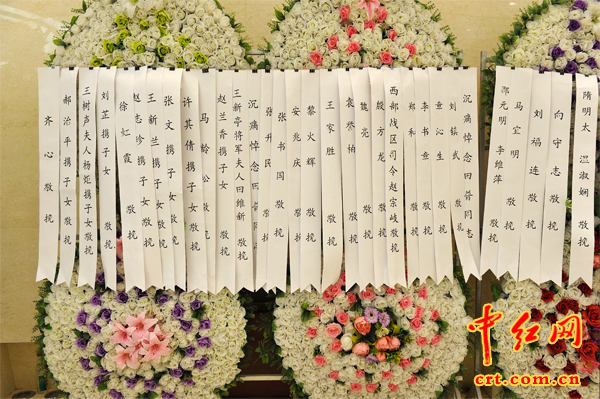 齐心 敬挽
郝治平携子女敬挽
王树声夫人杨炬携子女敬挽
刘芷携子女 敬挽
徐红霞 敬挽
赵志珍携子女敬挽
王新兰携子女敬挽
张文携子女敬挽
许其倩携子女敬挽
马龄松 敬挽
赵兰香携子女敬挽
王新亭将军夫人田维新
沉痛悼念田普同志
张升民 敬挽
张书国 敬挽
安兆庆 敬挽
黎火辉 敬挽
王家胜 敬挽
袁誉柏 敬挽
魏亮 敬挽
殷方龙 敬挽
西部战区司令赵宗岐敬挽
郑和 敬挽
李书章 敬挽
童沁生 敬挽
刘镇武 敬挽
沉痛悼念田普同志
邵元明 李维萍 敬挽
马宜明 敬挽
刘福连 敬挽
向守志 敬挽
隋明太 温淑娴 敬挽
中红网
crt.com.cn